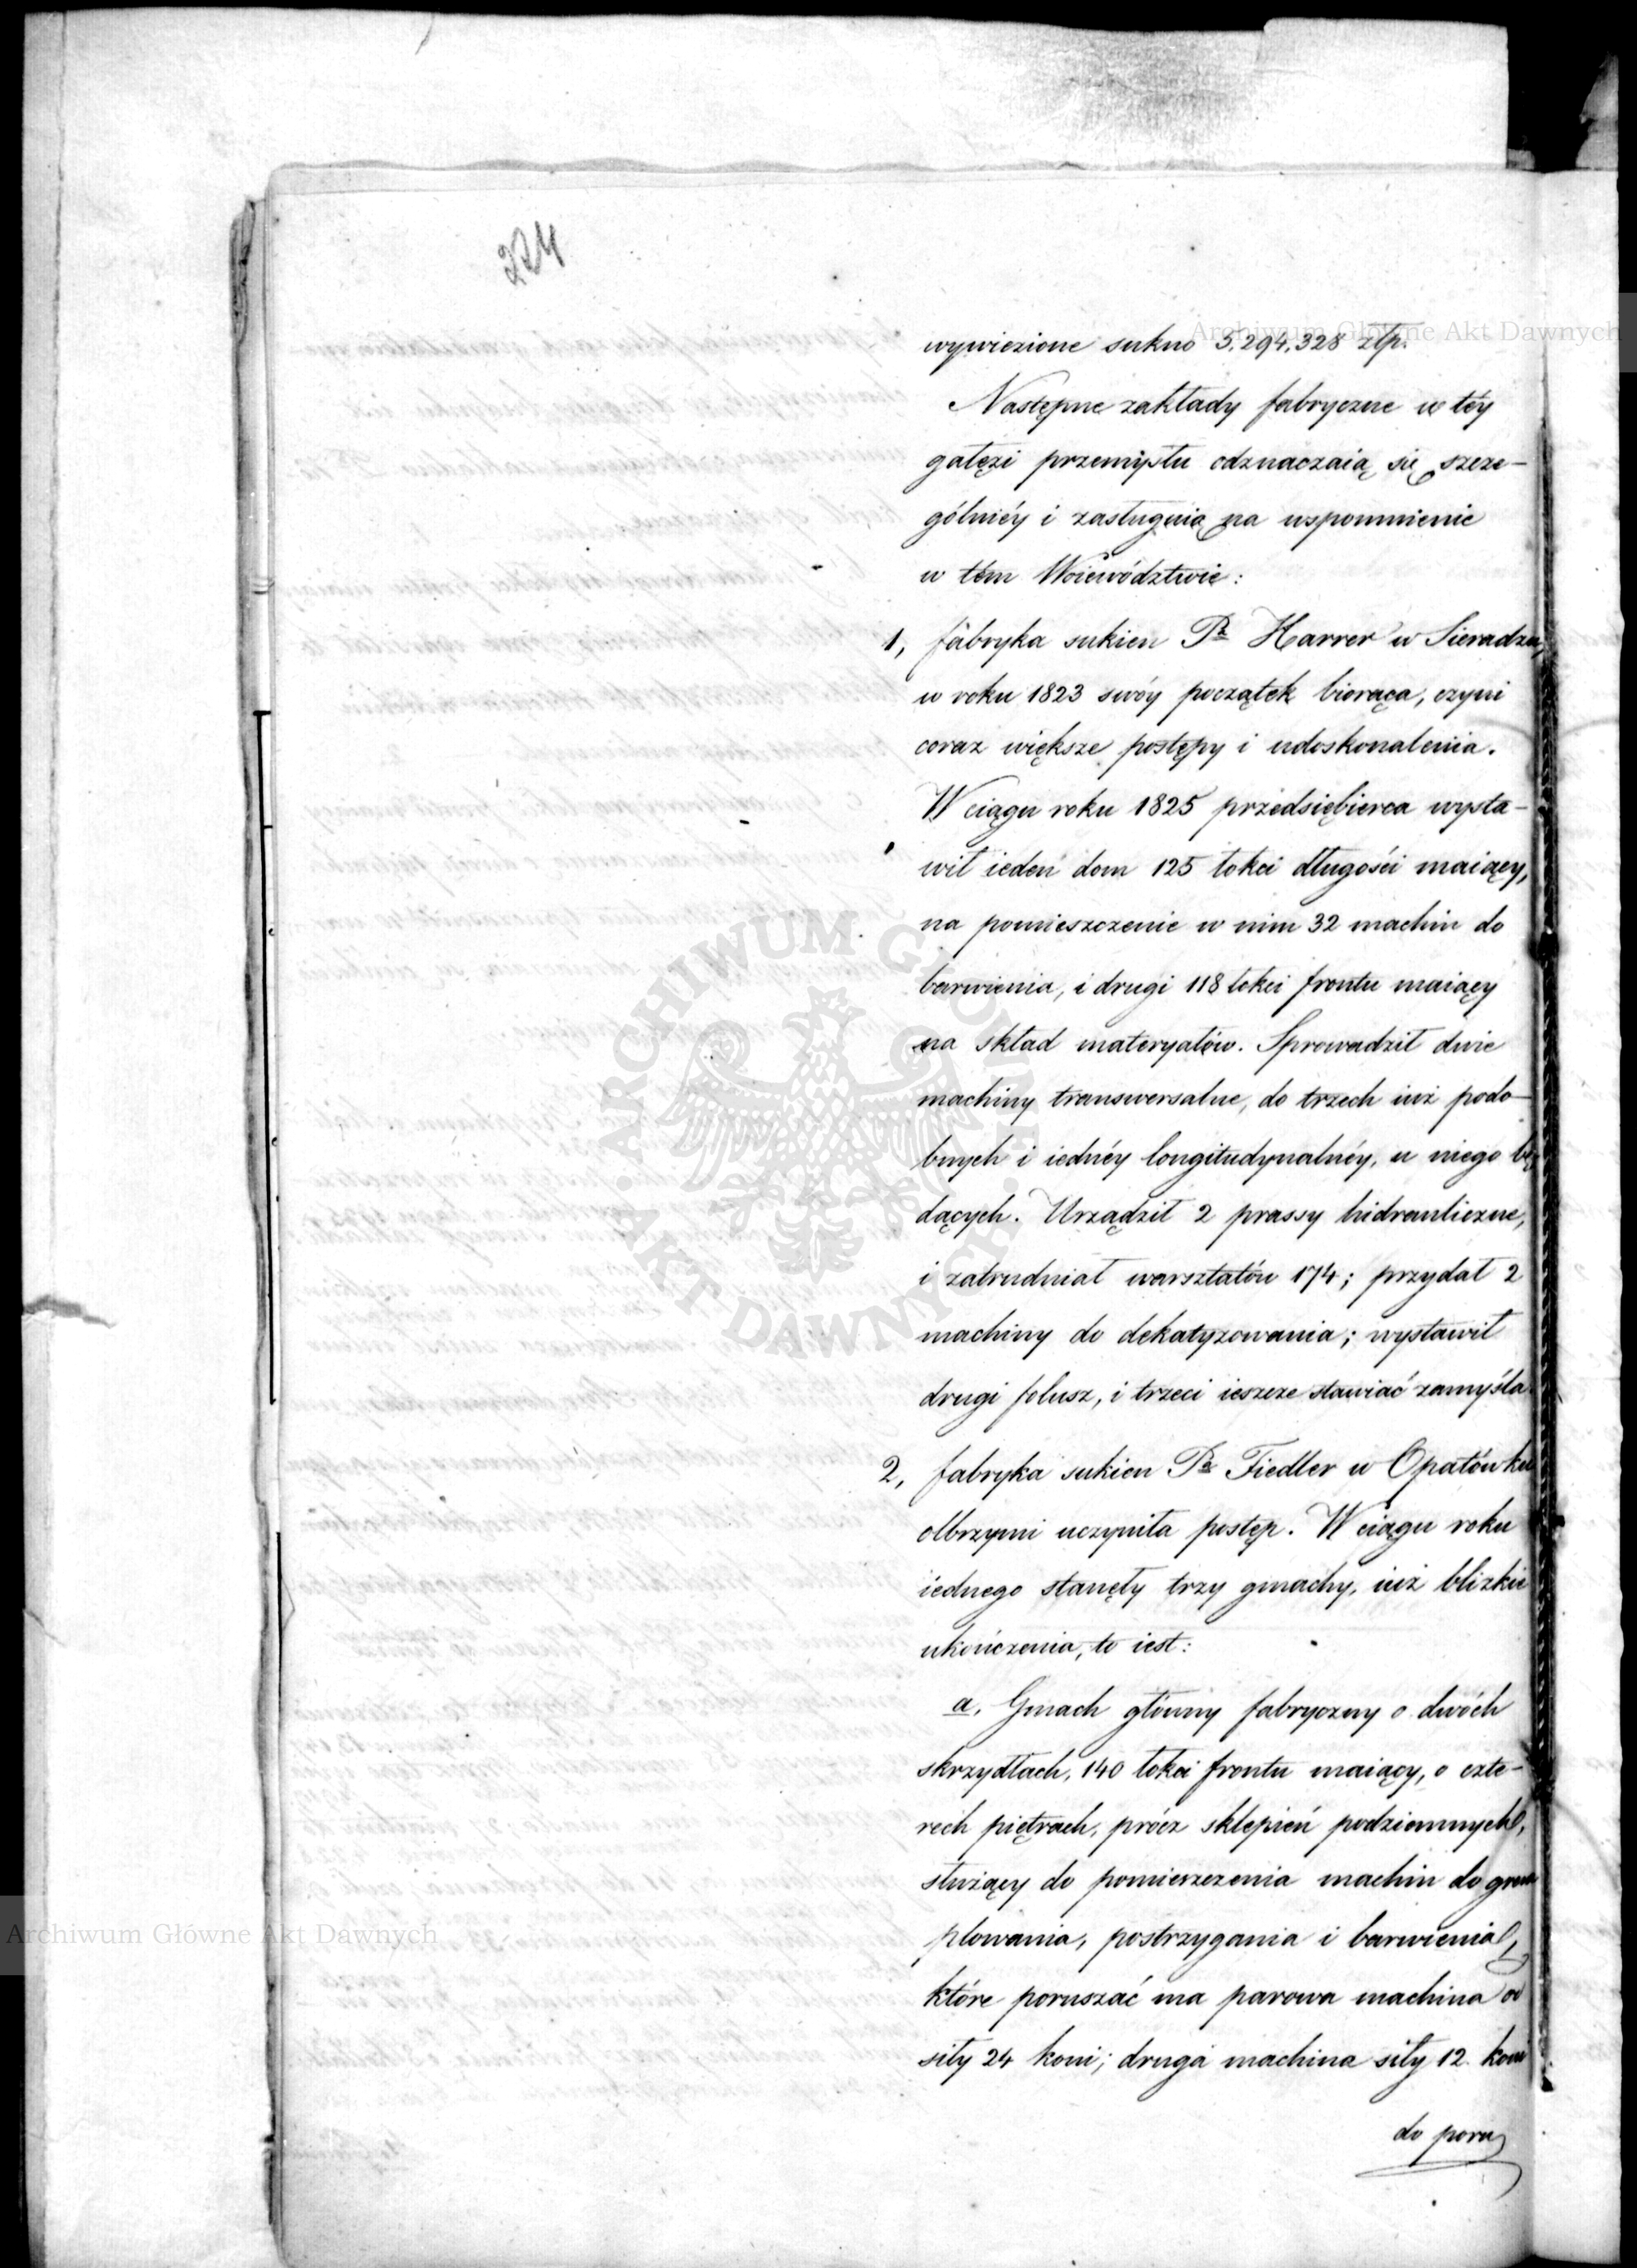 224
wywiezione sukno 5,294,328 złp.
Następne zakłady fabryczne w téy
gałęzi przemysłu odznaczaią się szcze-
gólniéy i zasługuią na wspomnienie
w tém Woiewództwie:
1, fabryka sukien Pa Harrer w Sieradzu,
w roku 1823 swóy początek biorąca, czyni
coraz większe postępy i udoskonalenia.
W ciągu roku 1825 przedsiębierca wysta-
wił ieden dom 125 łokci długości maiący,
na pomieszczenie w nim 32 machin do
barwienia, i drugi 118 łokci frontu maiący
na skład materyałów. Sprowadził dwie
machiny transwersalne, do trzech iuż podo-
bnych i iednéy longitudynalnéy, u niego bę
dących. Urządził 2 prassy hidrauliczne,
i zatrudniał warsztatów 174; przydał 2
machiny do dekatyzowania; wystawił
drugi folusz, i trzeci ieszcze stawiać zamyśla.
2, fabryka sukien Pa Fiedler w Opatówku
olbrzymi uczyniła postęp. W ciągu roku
iednego stanęły trzy gmachy, iuż blizkie
ukończenia, to iest:
a. Gmach główny fabryczny o dwóch
skrzydłach, 140 łokci frontu maiący, o czte-
rech piętrach, prócz sklepień podziemnych,
służący do pomieszczenia machin do grem
plowania, postrzygania i barwienia,
które poruszać ma parowa machina od
siły 24 koni; druga machina siły 12. koni
do poru
Archiwum Główne Akt Dawnych
ARCHIWUM GŁÓWNE
AKT DAWNYCH
Archiwum Główne Akt Dawnych